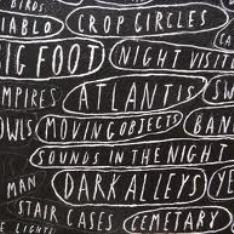 BIRDS
DIABLO CROP CIRCLES
BIG FOOT NIGHT VISIT
MPIRES ATLANTIS SW
OWLS MOVING OBJECTS BAN
SOUNDS IN THE NIGHT
MAN DARK ALLEYS YE
STAIR CASES CEMETARY
E LIGHTS